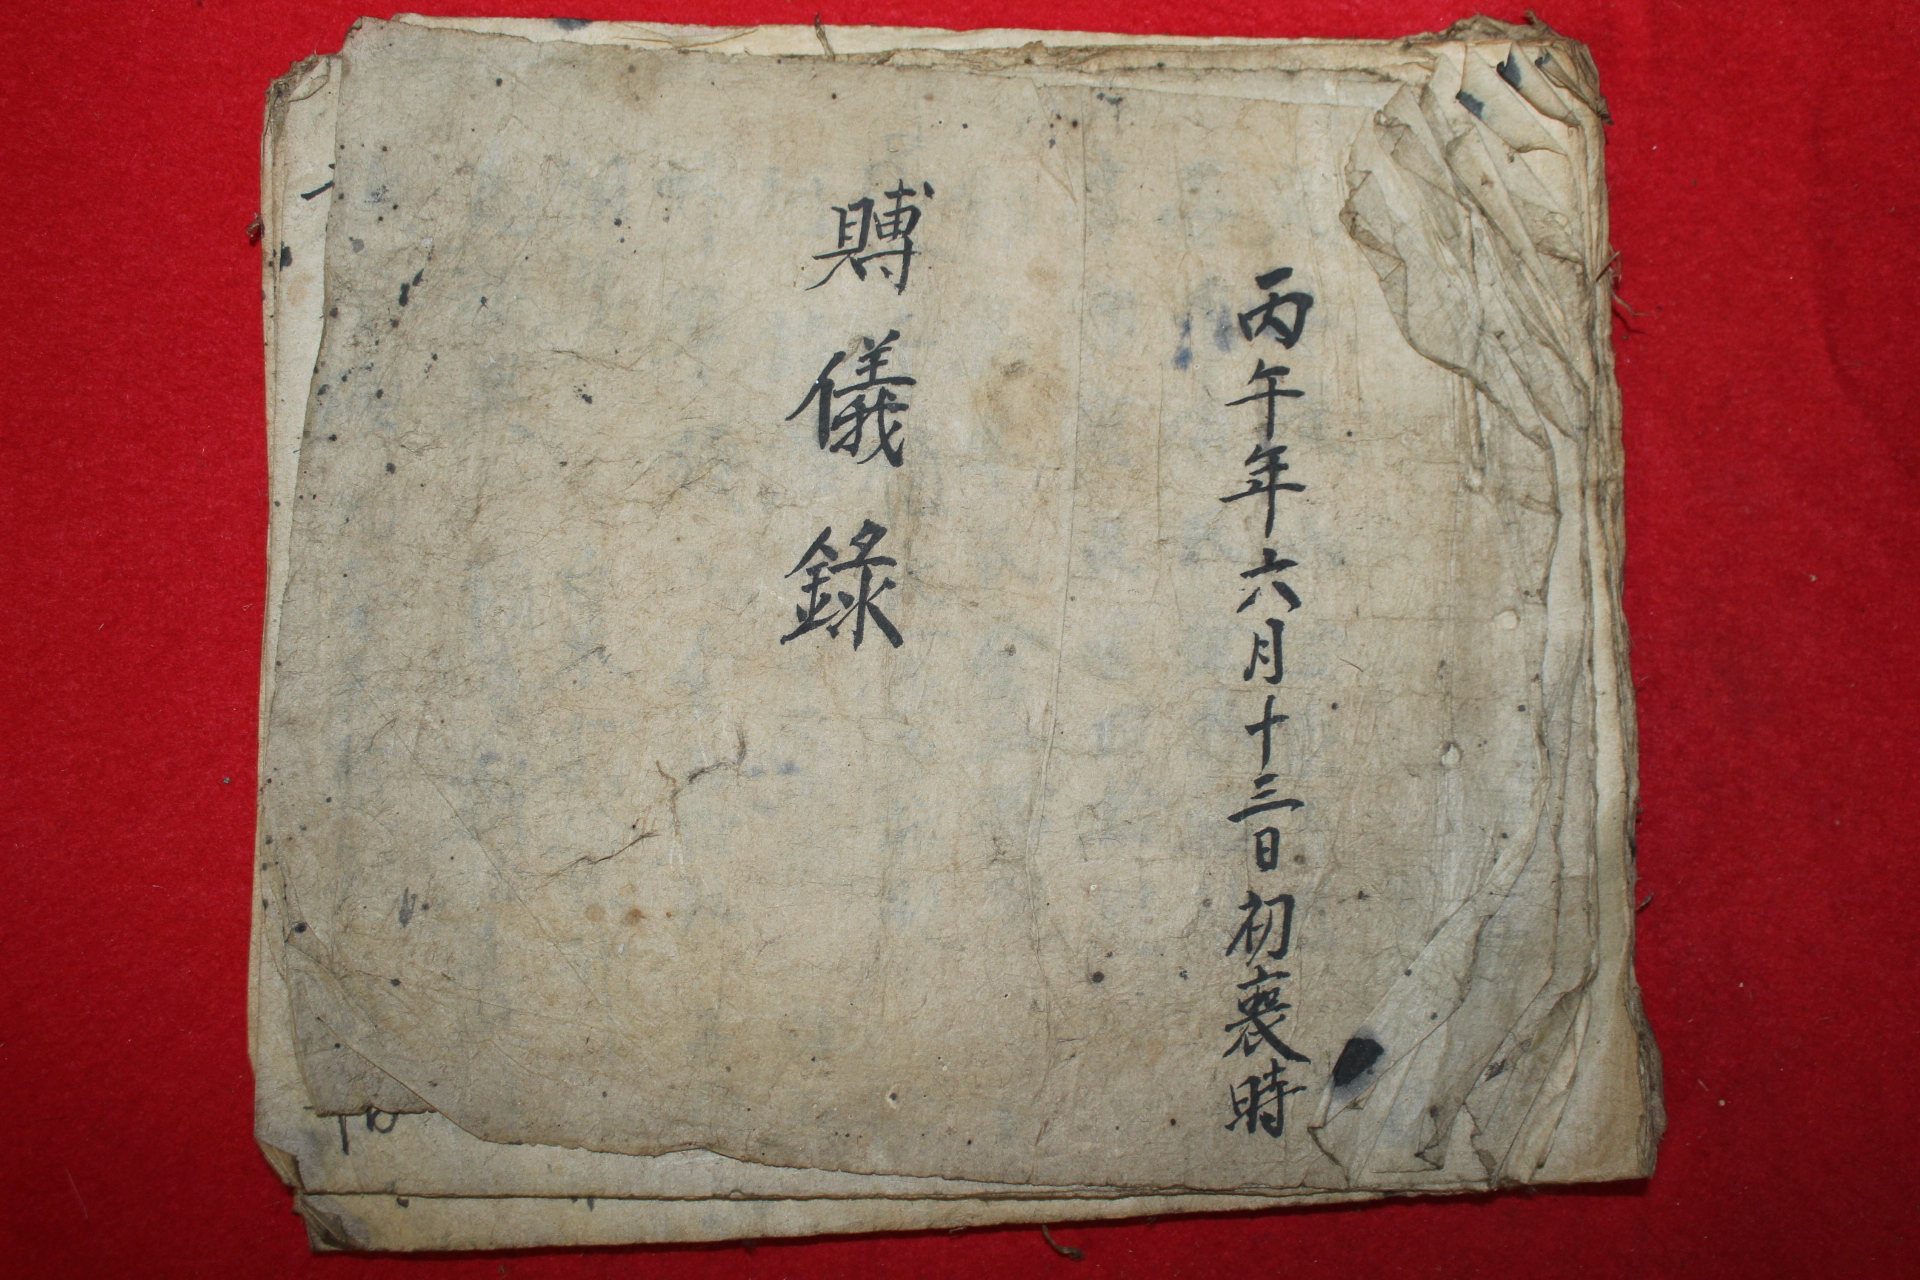 丙午年六月十三日初喪時
賻儀錄